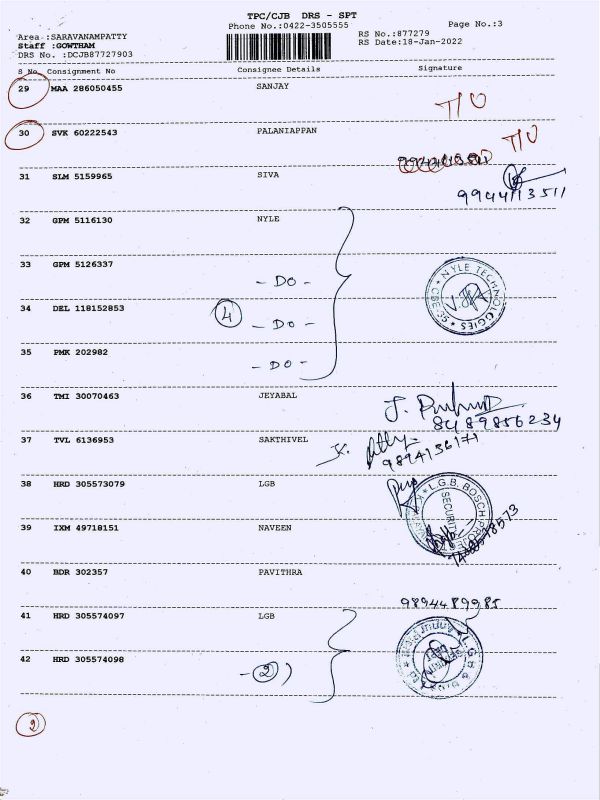 TPC/CJB DRS - SPT
Phone No.:0422-3505555
Page No.:3
Area :SARAVANAMPATTY
Staff :GOWTHAM
DRS No. :DCJB87727903
RS No.:877279
RS Date:18-Jan-2022
S No. Consignment No Consignee Details Signature
29 MAA 286050455 SANJAY
30 SVK 60222543 PALANIAPPAN
31 SLM 5159965 SIVA
9944113511
32 GPM 5116130 NYLE
33 GPM 5126337 - DO -
34 DEL 118152853 4 - DO -
35 PMK 202982 - DO -
NYLE TECHNOLOGIES * CBE-35 *
36 TMI 30070463 JEYABAL
8489856234
37 TVL 6136953 SAKTHIVEL
9894136171
38 HRD 305573079 LGB
L.G.B. BOSCH
SECURITY
39 IXM 49718151 NAVEEN
40 BDR 302357 PAVITHRA
9894489985
41 HRD 305574097 LGB
42 HRD 305574098 - 2
2